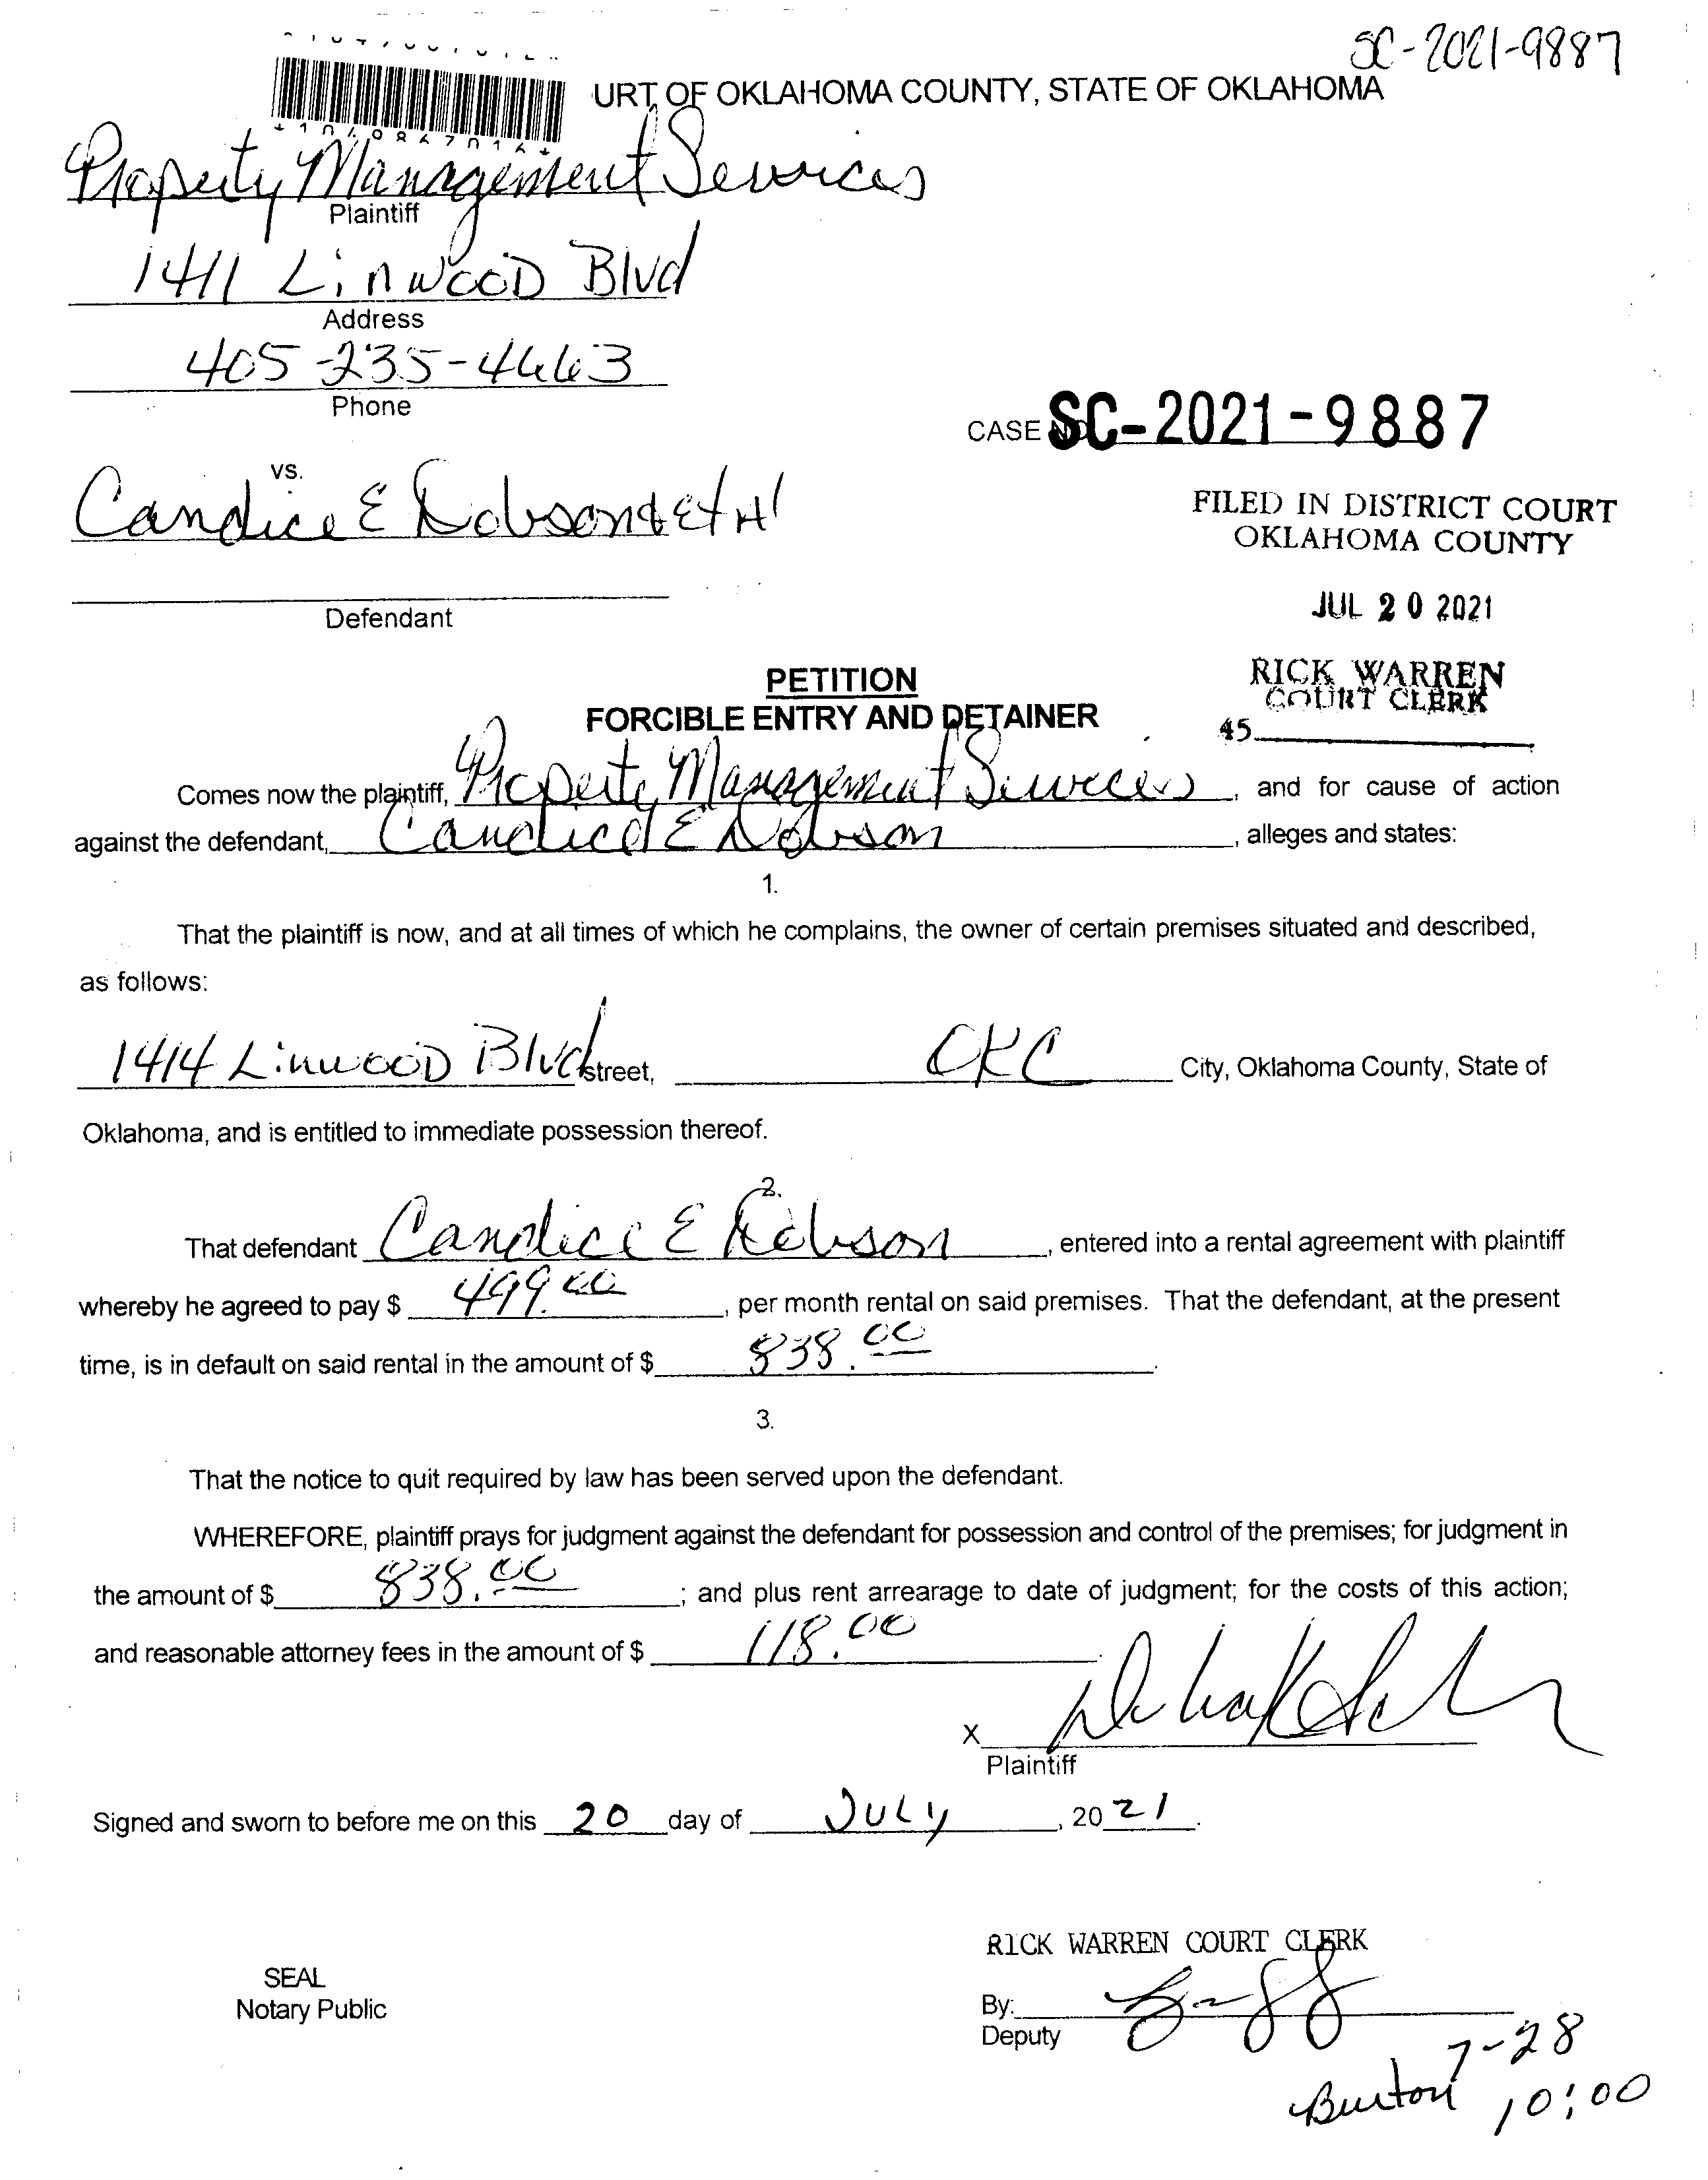 SC-2021-9887
URT OF OKLAHOMA COUNTY, STATE OF OKLAHOMA
Property Management Services
Plaintiff
1411 Linwood Blvd
Address
405-235-4663
Phone
CASE NO SC-2021-9887
vs.
Candice E Dobson & Et Al
FILED IN DISTRICT COURT
OKLAHOMA COUNTY
Defendant
JUL 20 2021
RICK WARREN
COURT CLERK
45
PETITION
FORCIBLE ENTRY AND DETAINER
Comes now the plaintiff, Property Management Services, and for cause of action
against the defendant, Candice E Dobson, alleges and states:
1.
That the plaintiff is now, and at all times of which he complains, the owner of certain premises situated and described,
as follows:
1414 Linwood Blvd street, OKC City, Oklahoma County, State of
Oklahoma, and is entitled to immediate possession thereof.
2.
That defendant Candice E Dobson, entered into a rental agreement with plaintiff
whereby he agreed to pay $ 499.00, per month rental on said premises. That the defendant, at the present
time, is in default on said rental in the amount of $ 838.00.
3.
That the notice to quit required by law has been served upon the defendant.
WHEREFORE, plaintiff prays for judgment against the defendant for possession and control of the premises; for judgment in
the amount of $ 838.00; and plus rent arrearage to date of judgment; for the costs of this action;
and reasonable attorney fees in the amount of $ 118.00.
X
Plaintiff
Signed and sworn to before me on this 20 day of July, 2021.
RICK WARREN COURT CLERK
SEAL
Notary Public
By:
Deputy
7-28
Burton 10:00